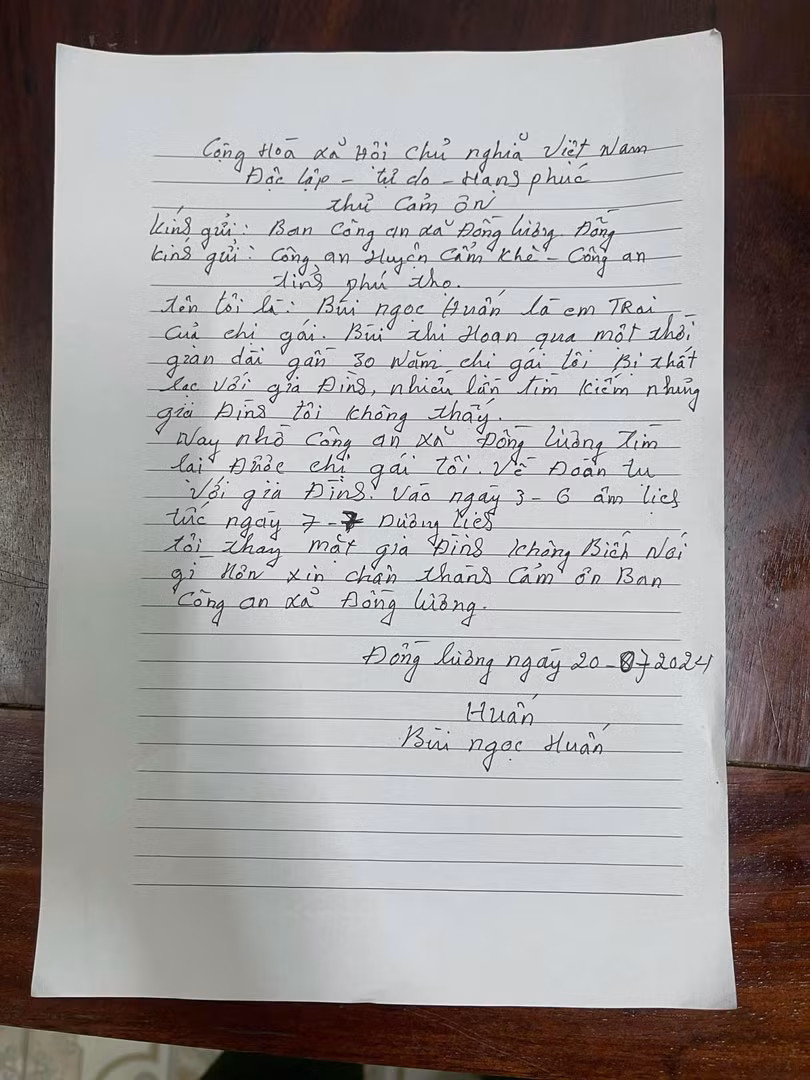 Cộng Hoà xã Hội chủ nghĩa Việt Nam
Độc lập - tự do - Hạnh phúc
thư Cảm ơn
kính gửi: Ban Công an xã Đồng lương. Đồng
kính gửi: Công an Huyện Cẩm Khê - Công an
tỉnh phú thọ.
tên tôi là: Bùi ngọc Huấn là em TRai
Của chị gái. Bùi thị Hoan qua một thời
gian dài gần 30 Năm chị gái tôi Bị thất
lạc với gia Đình, nhiều lần tìm kiếm nhưng
gia Đình tôi không thấy.
Nay nhờ Công an xã Đồng lương tìm
lại Được chị gái tôi. Về Đoàn tụ
với gia Đình. Vào ngày 3 - 6 âm lịch
tức ngày 7 - 7 Dương lịch
tôi thay mặt gia Đình không Biết Nói
gì Hơn xin chân thành Cảm ơn Ban
Công an xã Đồng lương.
Đồng lương ngày 20 - 07 2024
Huấn
Bùi ngọc Huấn